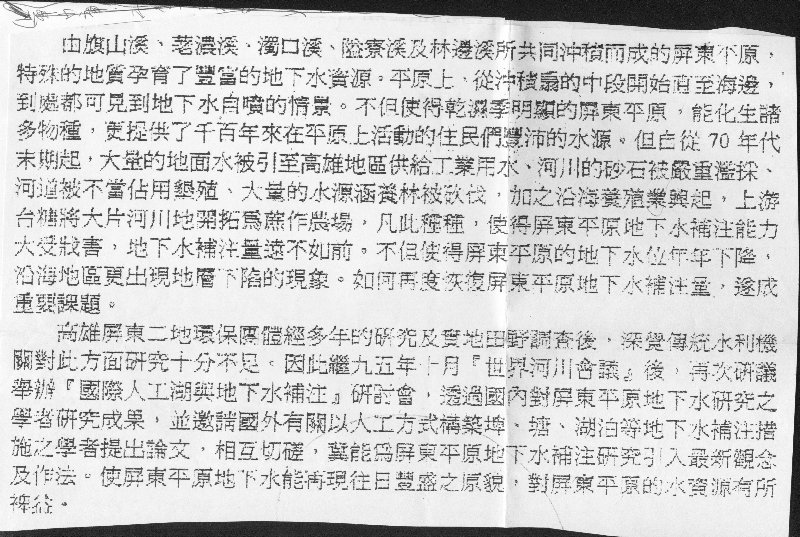 由旗山溪、荖濃溪、濁口溪、隘寮溪及林邊溪所共同沖積而成的屏東平原，
特殊的地質孕育了豐富的地下水資源。平原上，從沖積扇的中段開始直至海邊，
到處都可見到地下水自噴的情景。不但使得乾濕季明顯的屏東平原，能化生諸
多物種，更提供了千百年來在平原上活動的住民們豐沛的水源。但自從 70 年代
末期起，大量的地面水被引至高雄地區供給工業用水、河川的砂石被嚴重濫採、
河道被不當佔用墾殖、大量的水源涵養林被砍伐，加之沿海養殖業興起，上游
台糖將大片河川地開拓為蔗作農場，凡此種種，使得屏東平原地下水補注能力
大受戕害，地下水補注量遠不如前。不但使得屏東平原的地下水位年年下降，
沿海地區更出現地層下陷的現象。如何再度恢復屏東平原地下水補注量，遂成
重要課題。
高雄屏東二地環保團體經多年的研究及實地田野調查後，深覺傳統水利機
關對此方面研究十分不足。因此繼九五年十月『世界河川會議』後，再次研議
舉辦『國際人工湖與地下水補注』研討會，透過國內對屏東平原地下水研究之
學者研究成果，並邀請國外有關以人工方式構築埤、塘、湖泊等地下水補注措
施之學者提出論文，相互切磋，冀能為屏東平原地下水補注研究引入最新觀念
及作法。使屏東平原地下水能再現往日豐盛之原貌，對屏東平原的水資源有所
裨益。